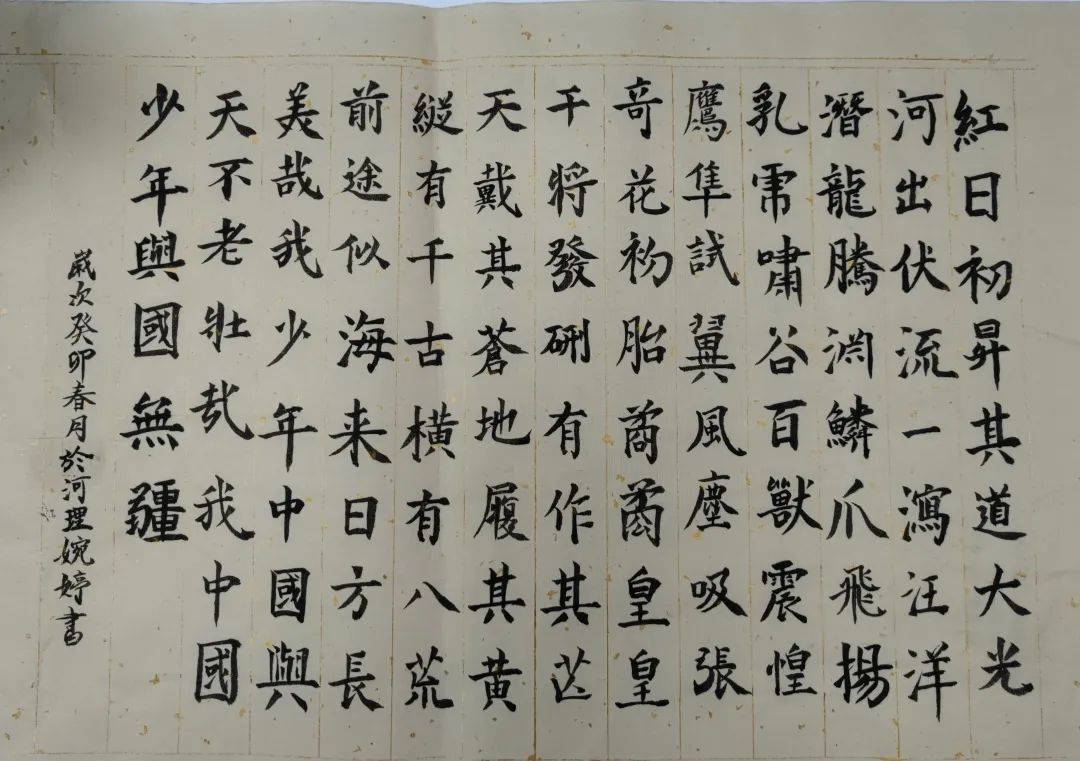 紅日初昇其道大光
河出伏流一瀉汪洋
潛龍騰淵鱗爪飛揚
乳虎嘯谷百獸震惶
鷹隼試翼風塵吸張
奇花初胎矞矞皇皇
干將發硎有作其芒
天戴其蒼地履其黃
縱有千古橫有八荒
前途似海来日方長
美哉我少年中國與
天不老壯哉我中國
少年與國無疆
歲次癸卯春月於河理婉婷書